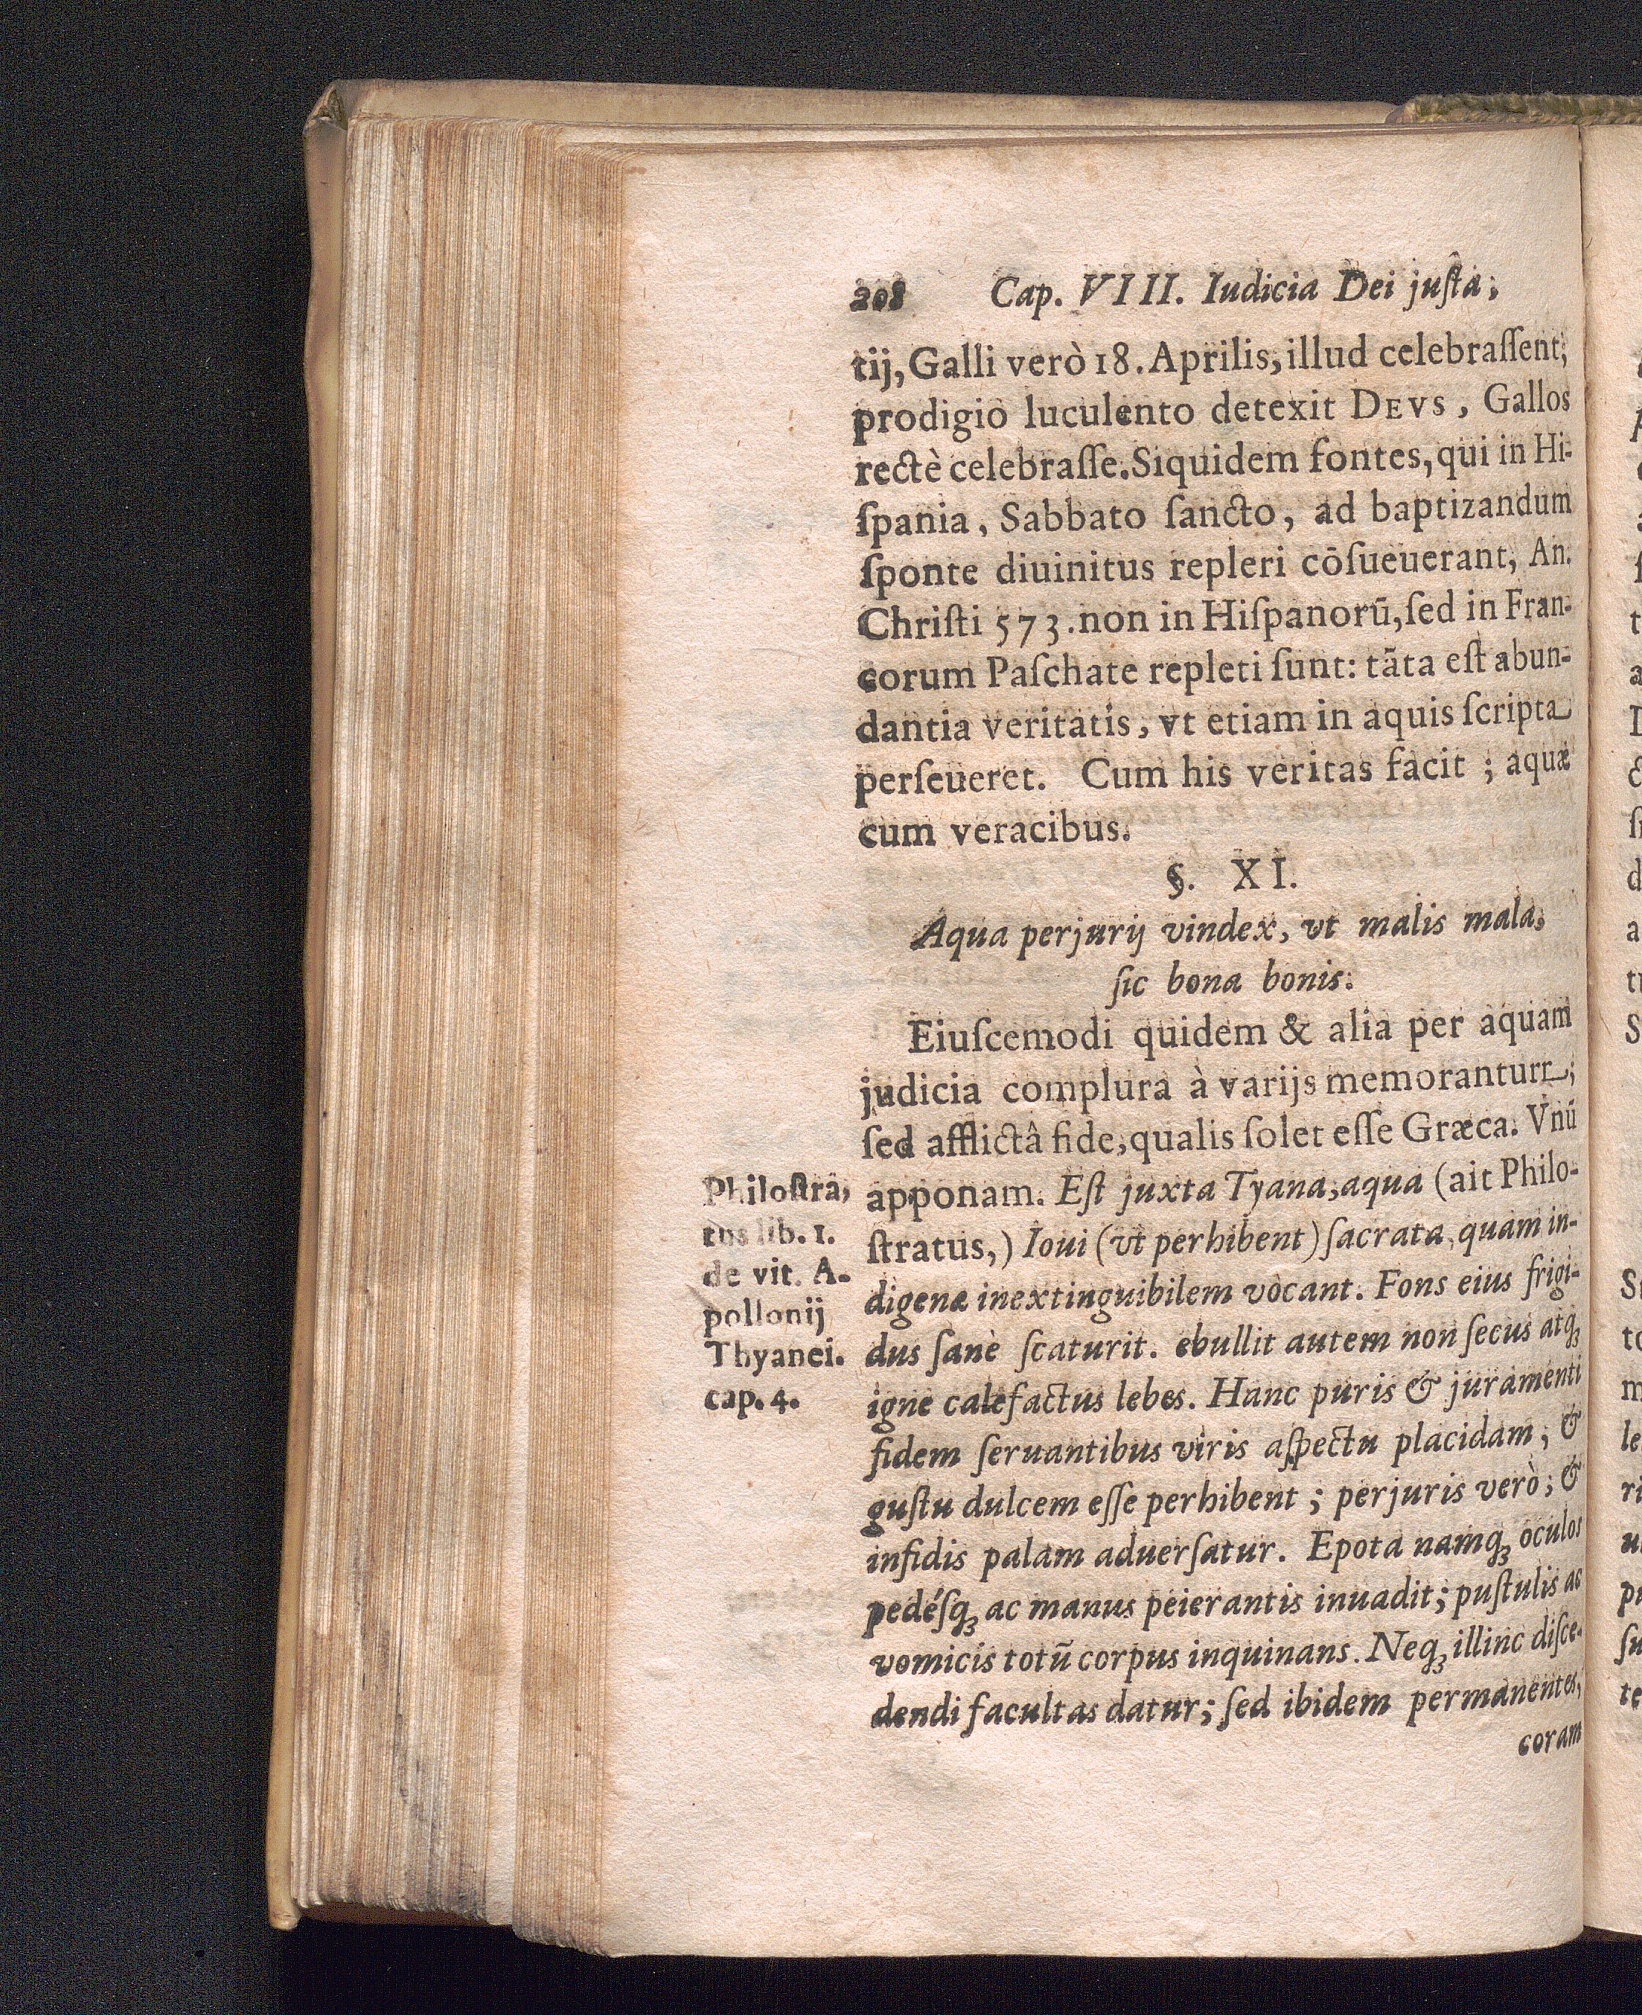 208 Cap. VIII. Iudicia Dei juſta;
tij, Galli verò 18. Aprilis, illud celebraſſent;
prodigio luculento detexit DEVS, Gallos
rectè celebraſſe. Siquidem fontes, qui in Hi-
ſpania, Sabbato ſancto, ad baptizandum
ſponte diuinitus repleri cōſueuerant, An.
Chriſti 573. non in Hiſpanorū, ſed in Fran-
corum Paſchate repleti ſunt: tāta eſt abun-
dantia veritatis, vt etiam in aquis ſcripta
perſeueret. Cum his veritas facit; aquæ
cum veracibus.
§. XI.
Aqua perjurij vindex, vt malis mala,
ſic bona bonis.
Eiuſcemodi quidem & alia per aquam
judicia complura à varijs memorantur;
ſed afflictâ fide, qualis ſolet eſſe Græca. Vnū
apponam. Eſt juxta Tyana, aqua (ait Philo-
ſtratus,) Ioui (vt perhibent) ſacrata, quam in-
digenæ inextinguibilem vocant. Fons eius frigi-
dus ſanè ſcaturit. ebullit autem non ſecus atq;
igne calefactus lebes. Hanc puris & juramenti
fidem ſeruantibus viris aſpectu placidam; &
guſtu dulcem eſſe perhibent; perjuris verò; &
infidis palam aduerſatur. Epota namq; oculos
pedéſq; ac manus peierantis inuadit; puſtulis ac
vomicis totū corpus inquinans. Neq; illinc diſce-
dendi facultas datur; ſed ibidem permanentes,
coram
Philoſtra,
tus lib. 1.
de vit. A-
pollonij
Thyanei.
cap. 4.